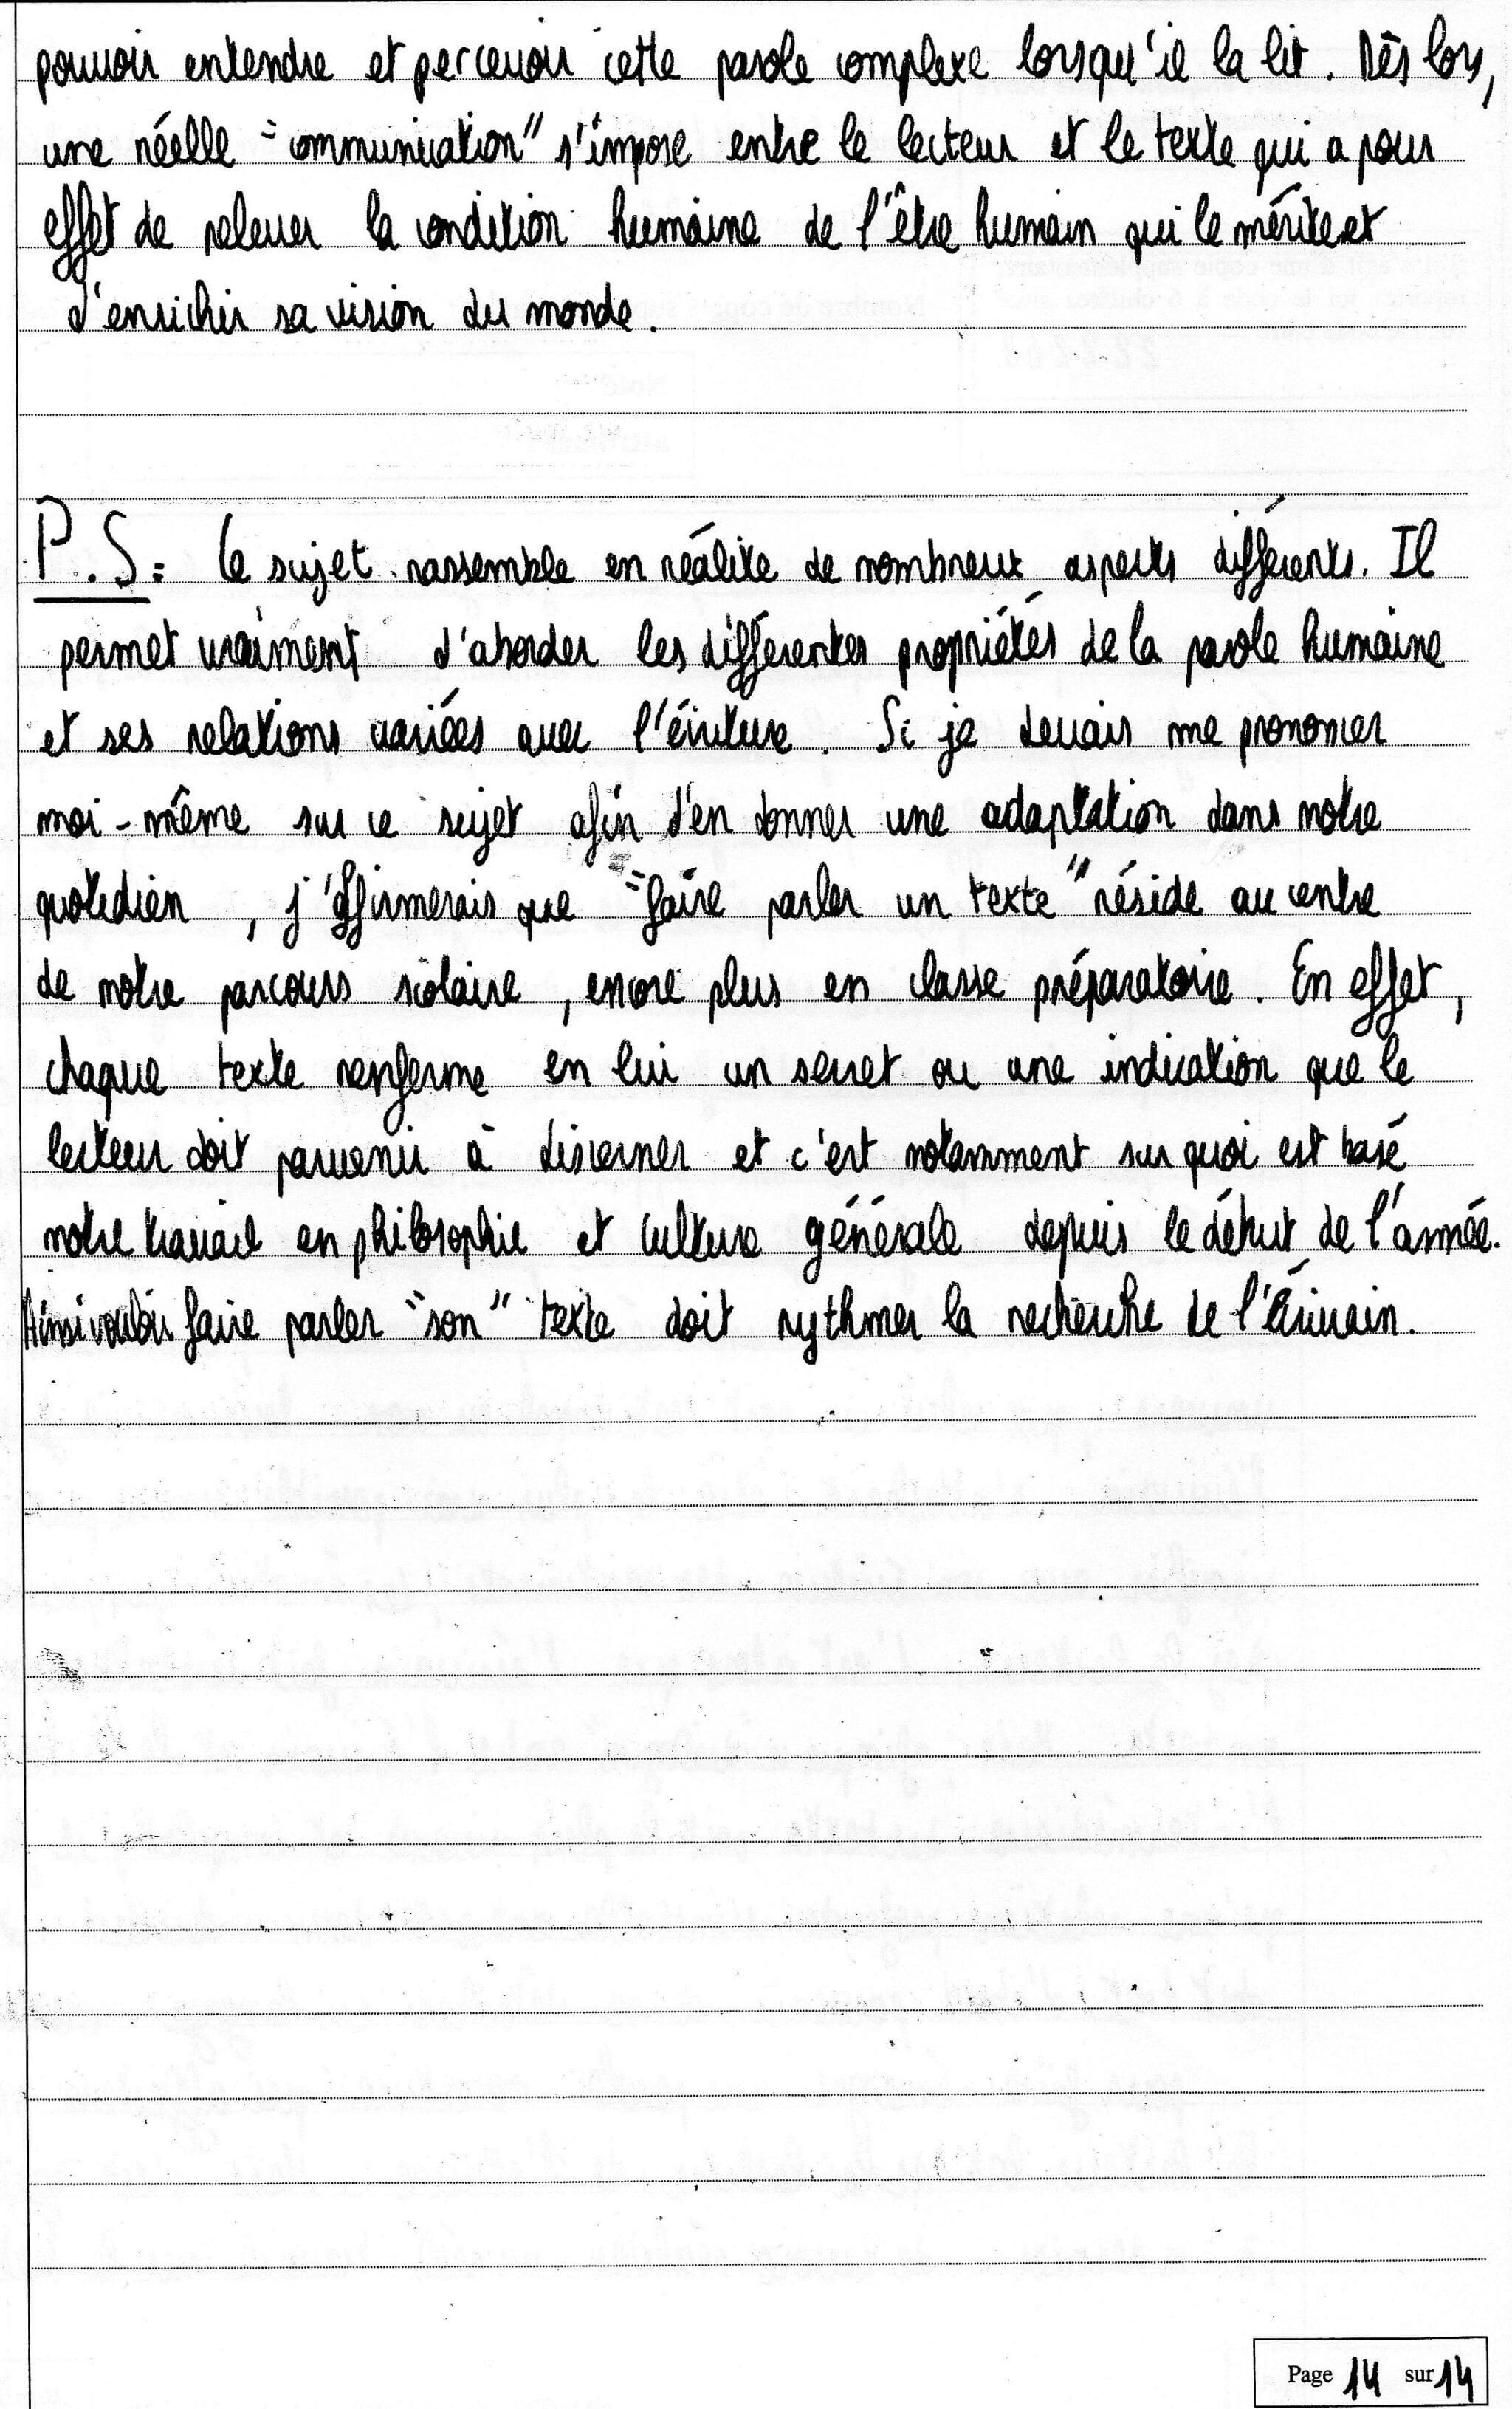 pouvoir entendre et percevoir cette parole complexe lorsqu'il la lit. Dès lors,
une réelle "communication" s'impose entre le lecteur et le texte qui a pour
effet de relever la condition humaine de l'être humain qui le mérite et
d'enrichir sa vision du monde.
P.S: Ce sujet rassemble en réalité de nombreux aspects différents. Il
permet vraiment d'aborder les différentes propriétés de la parole humaine
et ses relations variées avec l'écriture. Si je devais me prononcer
moi-même sur ce sujet afin d'en donner une adaptation dans notre
quotidien, j'affirmerais que "faire parler un texte" réside au centre
de notre parcours scolaire, encore plus en classe préparatoire. En effet,
chaque texte renferme en lui un secret ou une indication que le
lecteur doit parvenir à discerner et c'est notamment sur quoi est basé
notre travail en philosophie et culture générale depuis le début de l'année.
Ainsi vouloir faire parler "son" texte doit rythmer la recherche de l'Écrivain.
Page 14 sur 14